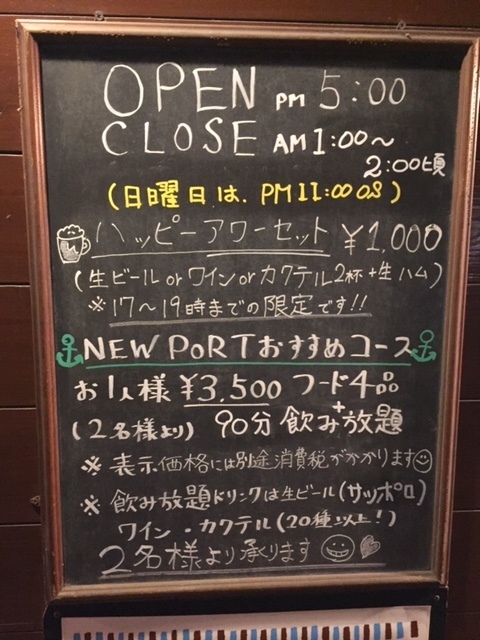 OPEN PM 5:00
CLOSE AM 1:00〜
2:00頃
(日曜日は、PM11:00 OS)
ハッピーアワーセット ¥1,000
(生ビール or ワイン or カクテル2杯+生ハム)
※17〜19時までの限定です!!
NEW PoRT おすすめコース
お1人様 ¥3,500 フード4品
+
(2名様より) 90分 飲み放題
※ 表示価格には別途消費税がかかります
※ 飲み放題ドリンクは生ビール(サッポロ)
ワイン・カクテル(20種以上!)
2名様より承ります